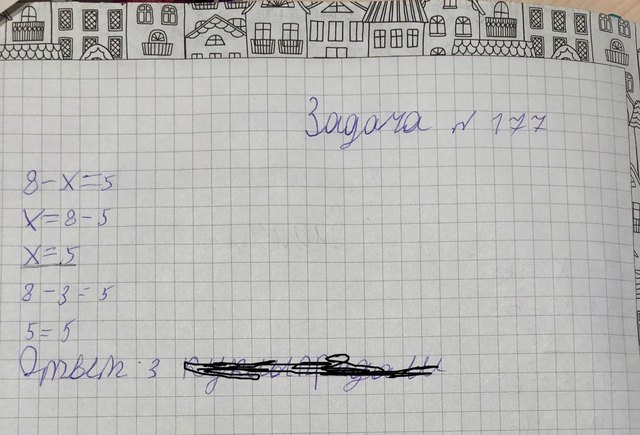 Задача № 177
8-x=5
x=8-5
x=5
8-3=5
5=5
Ответ: 3